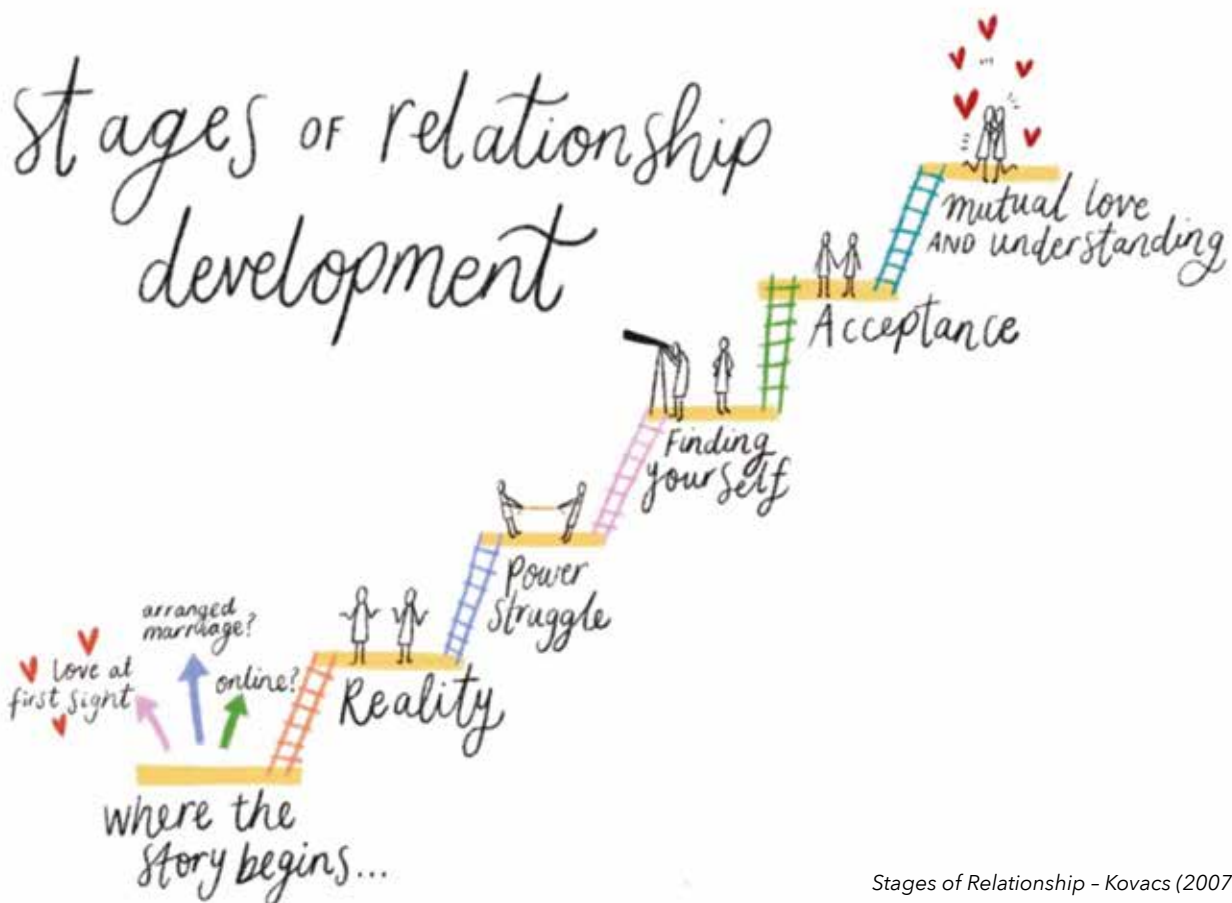 stages OF relationship
development
mutual love
AND understanding
Acceptance
Finding
yourself
Power
struggle
arranged
marriage?
love at
first sight
online?
Reality
where the
story begins...
Stages of Relationship – Kovacs (2007